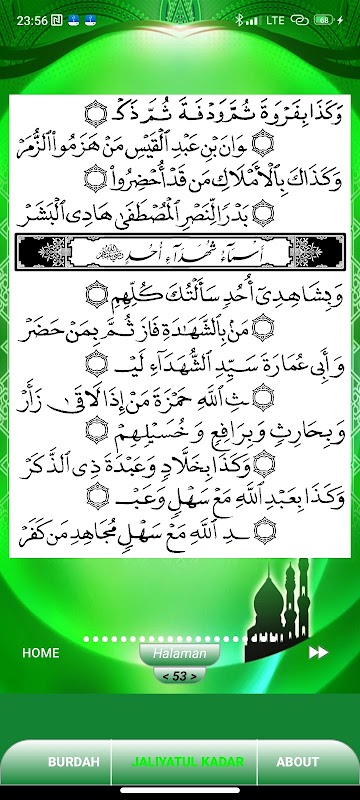 23:56 LTE 68
وَكَذَا بِفَرْوَةَ ثُمَّ وَدْفَةَ ثُمَّ ذَكْـ
ـوَانَ بْنِ عَبْدِ الْقَيْسِ مَنْ هَزَمُوا الزُّمَرْ
وَكَذَاكَ بِالْأَمْلَاكِ مَنْ قَدْ أُحْضِرُوا
بَدْرًا لِنَصْرِ الْمُصْطَفَى هَادِى الْبَشَرْ
أَسْمَآءُ شُهَدَآءِ أُحُدٍ
وَبِشَاهِدِىْ أُحُدٍ سَأَلْتُكَ كُلِّهِمِ
مَنْ بِالشَّهَادَةِ فَازَ ثُمَّ بِمَنْ حَضَرْ
وَأَبِى عُمَارَةَ سَيِّدِ الشُّهَدَآءِ لَيْـ
ـثِ اللّٰهِ حَمْزَةَ مَنْ إِذَا لَاقَى زَأَرْ
وَبِحَارِثٍ وَبِرَافِعٍ وَخُسَيْلِهِمْ
وَكَذَا بِخَلَّادٍ وَعَبْدَةَ ذِى الذَّكَرْ
وَكَذَا بِعَبْدِ اللّٰهِ مَعْ سَهْلٍ وَعَبْـ
ـدِ اللّٰهِ مَعْ سَهْلٍ مُجَاهِدِ مَنْ كَفَرْ
HOME Halaman
< 53 >
BURDAH JALIYATUL KADAR ABOUT